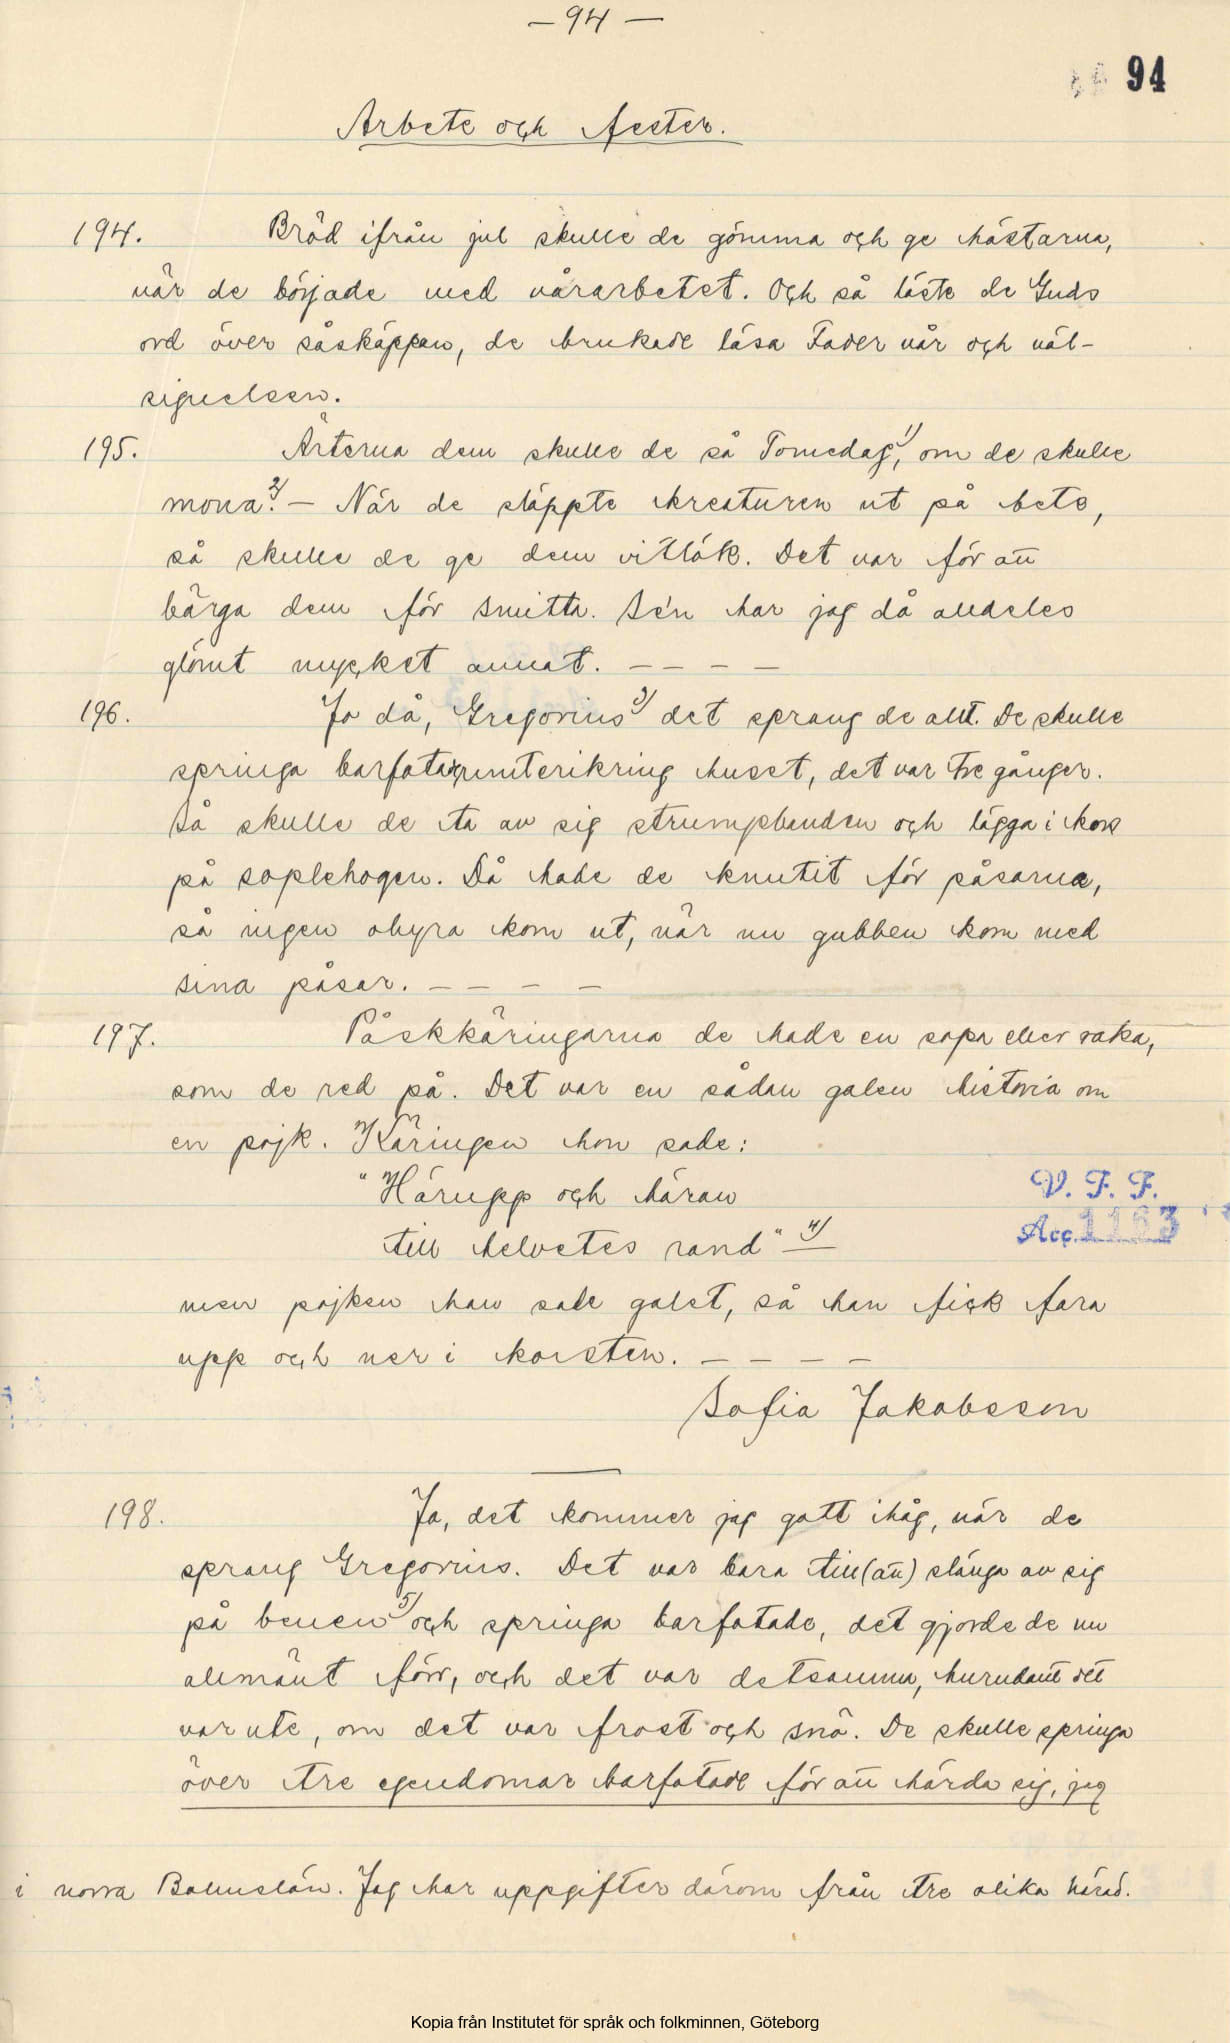 — 94 —
94
Arbete och fester.
194. Bröd ifrån jul skulle de gömma och ge hästarna,
när de började med vårarbetet. Och så läste de Guds
ord över såskäppan, de brukade läsa Fader vår och väl-
signelsen.
195. Ärterna dem skulle de så Tomedag,1) om de skulle
mona.2) — När de släppte kreaturen ut på bete,
så skulle de ge dem vitlök. Det var för att
bärga dem för smitta. Se'n har jag då alldeles
glömt mycket annat. — — — —
196. Jo då, Gregorius3) det sprang de allt. De skulle
springa barfota runterikring huset, det var tre gånger.
Så skulle de ta av sig strumpbanden och lägga i kors
på soplehogen. Då hade de knutit för påsarna,
så ingen ohyra kom ut, när nu gubben kom med
sina påsar. — — — —
197. Påskkäringarna de hade en sopa eller raka,
som de red på. Det var en sådan galen historia om
en pojk. Käringen hon sade:
"Härupp och häran
till helvetes rand" 4)
men pojken han sade galet, så han fick fara
upp och ner i korsten. — — — —
V. F. F.
Acc. 1153
Sofia Jakobsson
198. Ja, det kommer jag gott ihåg, när de
sprang Gregorius. Det var bara till (att) slänga av sig
på benen5) och springa barfotade, det gjorde de nu
allmänt förr, och det var detsamma, hurudant det
var ute, om det var frost och snö. De skulle springa
över tre egendomar barfotade för att härda sig, jag
i norra Bohuslän. Jag har uppgifter därom från tre olika härad.
Kopia från Institutet för språk och folkminnen, Göteborg